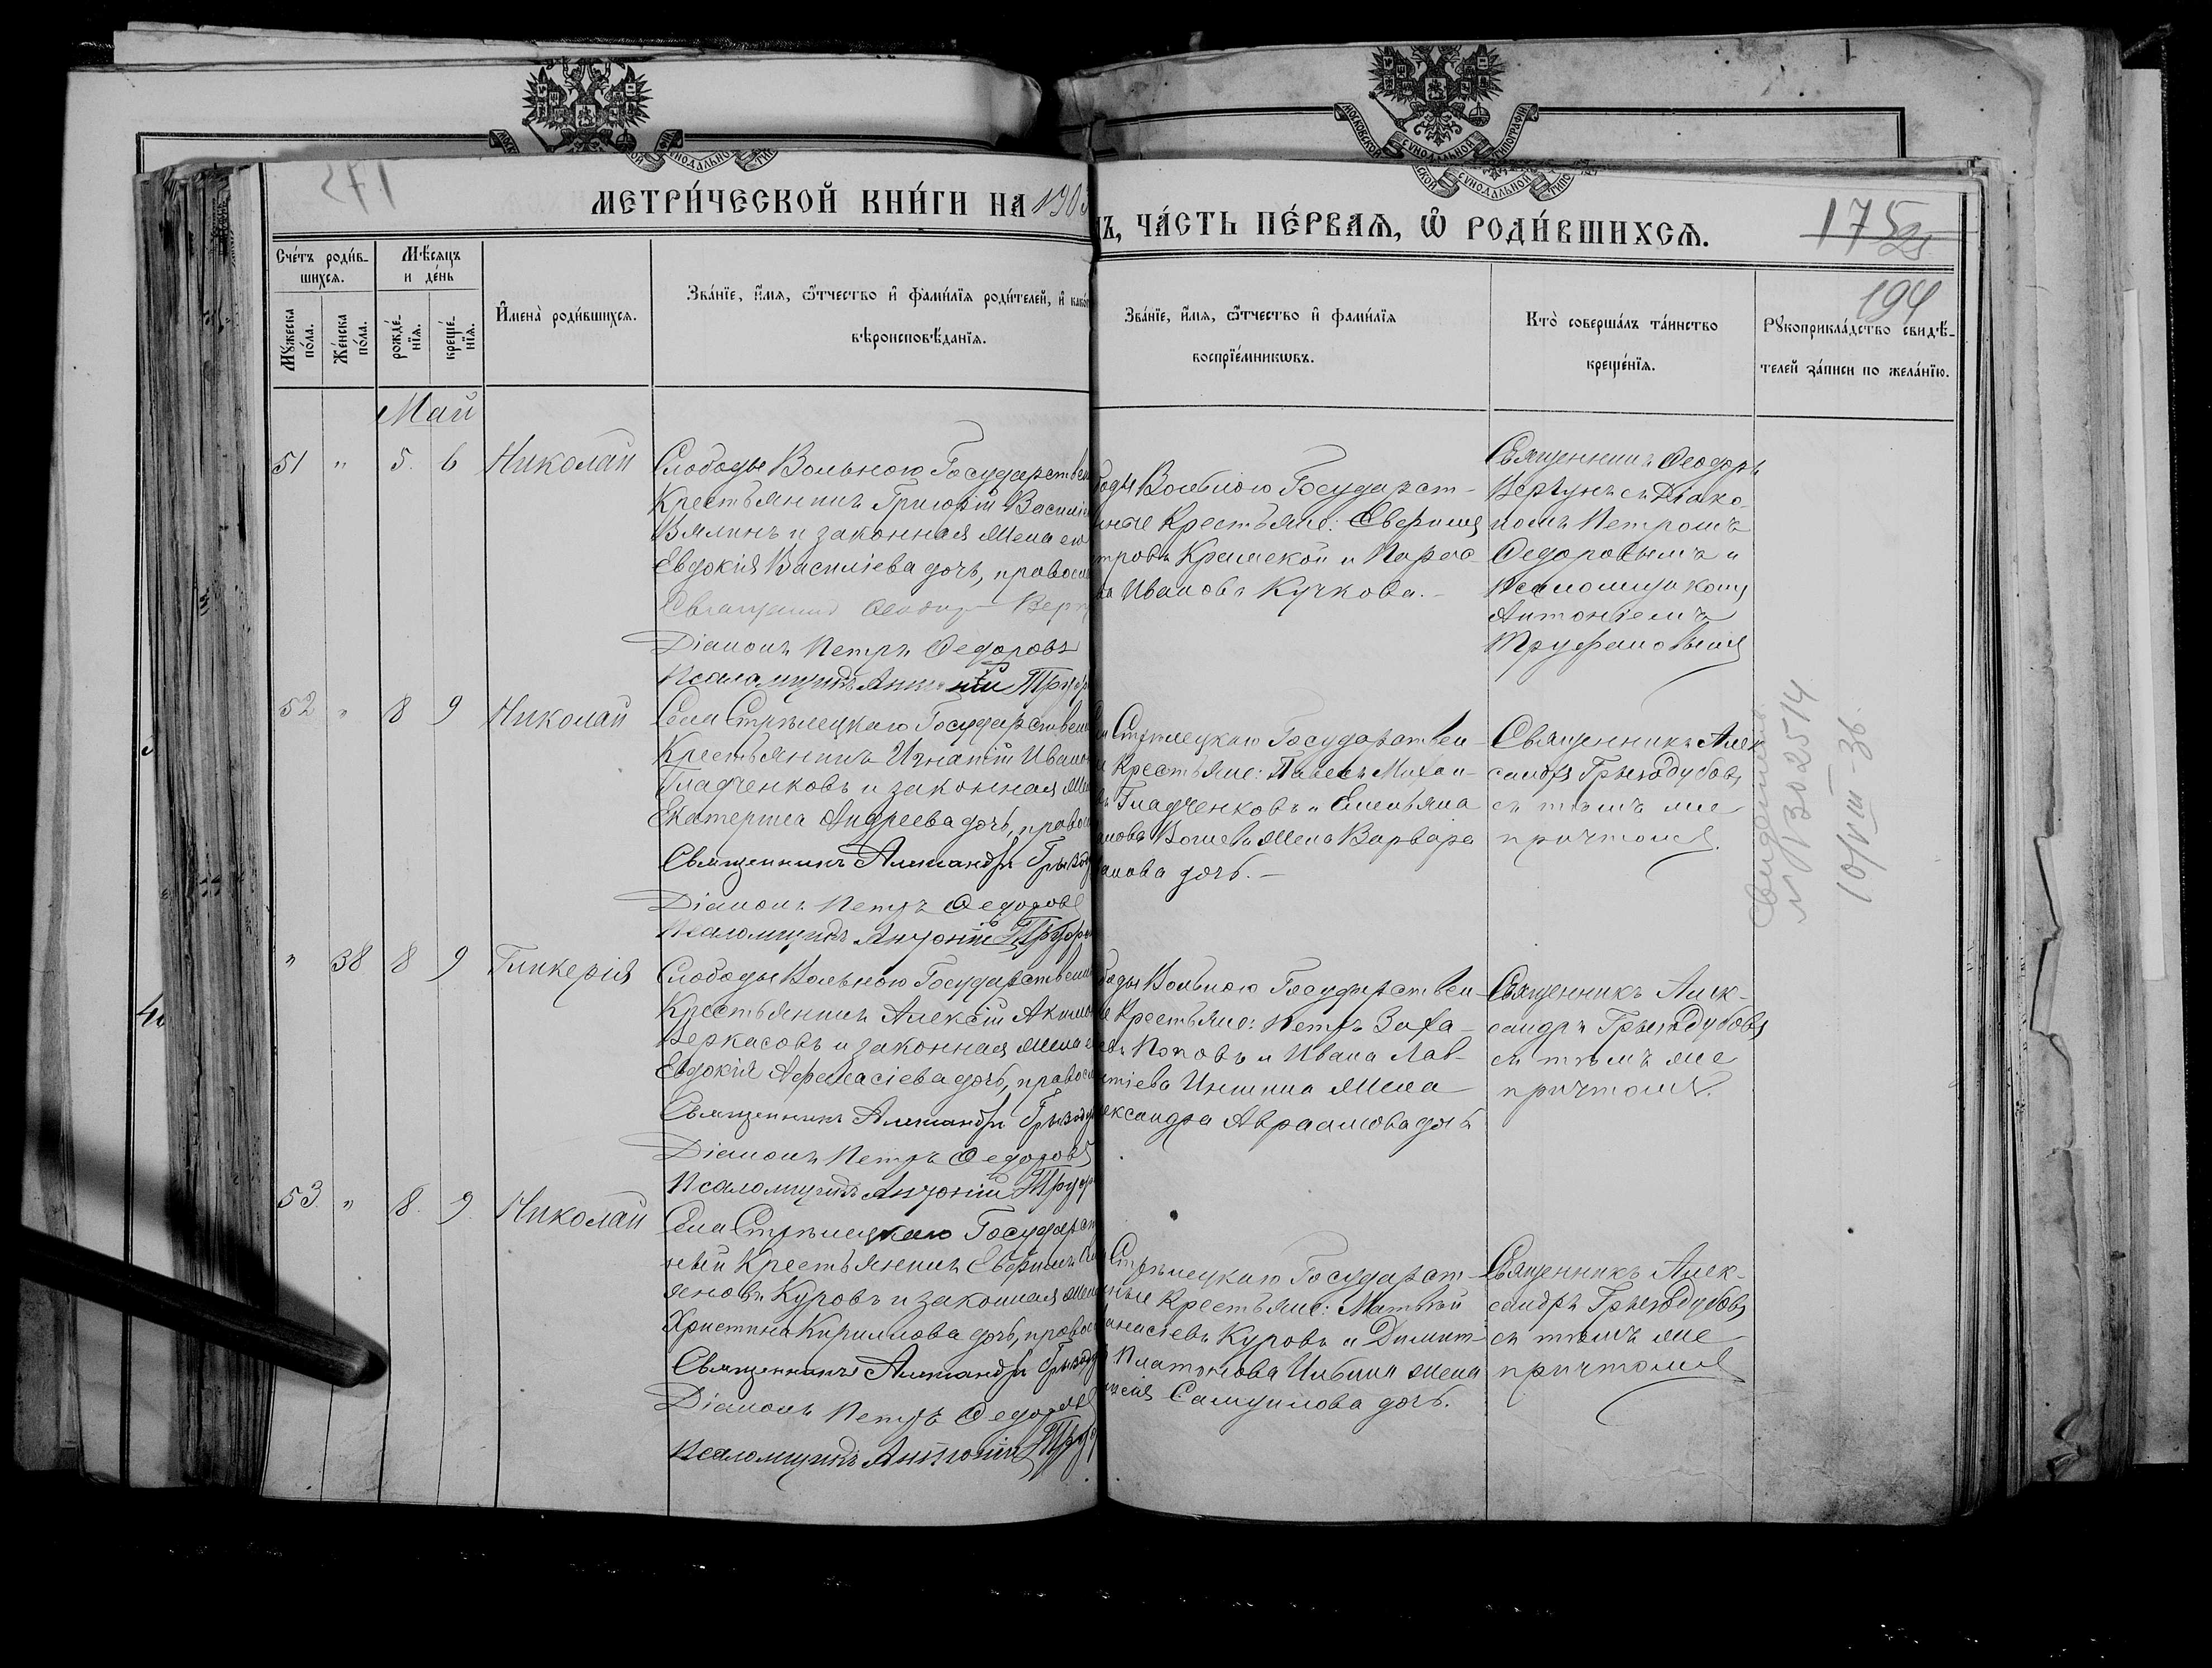 МОСКОВСКОЙ СѴНОДАЛЬНОЙ ТИПОГРАФІИ
271
МЕТРИ́ЧЕСКОЙ КНИ́ГИ НА 190
ЧА́СТЬ ПЕ́РВАЯ, Ѽ РОДИ́ВШИХСЯ.
175
194
Сче́тъ роди́в-
шихся.
Мѣ́сяцъ
и де́нь
Мꙋ́жеска
по́ла.
Же́нска
по́ла.
рожде́-
нїя.
креще́-
нїя.
И҆мена̀ роди́вшихся.
Зва́нїе, и҆́мя, ѻ҆́тчество и҆ фами́лїя роди́телей, и҆
вѣроисповѣ́данїя.
Зва́нїе, и҆́мя, ѻ҆́тчество и҆ фами́лїя
воспрїе́мникѡвъ.
Кто̀ соверша́лъ та́инство
креще́нїя.
Рꙋкоприкла́дство свидѣ́-
телей за́писи по жела́нїю.
Май
51 " 5. 6 Николай
Слободы Вольного Государствен
Крестьянинъ Григорій Василі
Вялинъ и законная жена его
Евдокія Василіева дочь, правосл
Священникъ Ѳеодоръ Верг
Діаконъ Петръ Ѳедоровъ
Псаломщикъ Антоній Труф
боды Вольного Государст-
нные Крестьяне: Евфимій
тровъ Крамской и Парас-
ва Иванова Кучкова.-
Священникъ Ѳеодоръ
Вергунъ съ Діако-
номъ Петромъ
Ѳедоровымъ и
Псаломщикомъ
Антоніемъ
Труфановымъ
52 " 8 9 Николай
Села Стрѣлецкаго Государствен
Крестьянинъ Игнатій Ивано
Гладченковъ и законная же
Екатерина Андреева дочь, право
Священникъ Александръ Грызод
Діаконъ Петръ Ѳедоровъ
Псаломщикъ Антоній Труфа
Стрѣлецкаго Государствен-
Крестьяне: Павелъ Михаи-
въ Гладченковъ и Емельяна
жена Варвара
анова дочь.-
Священникъ Алек-
сандръ Грызодубовъ
съ тѣмъ же
причтомъ.
Свидетель
№ 302514
10/VIII-36.
" 38 8 9 Гликерія
Слободы Вольного Государствен
Крестьянинъ Алексій Акимо
Веркасовъ и законная жена е
Евдокія Афанасіева дочь, правосл
Священникъ Александръ Грызоду
Діаконъ Петръ Ѳедоровъ
Псаломщикъ Антоній Труф
боды Вольного Государствен-
е Крестьяне: Петръ Заха-
евъ Поповъ и Ивана Лав-
нтіева жена
ександра Авраамова дочь
Священникъ Алек-
сандръ Грызодубовъ
съ тѣмъ же
причтомъ.
53. " 8. 9. Николай
Села Стрѣлецкаго Государст
ный Крестьянинъ Евфимъ
яновъ Куровъ и законная жен
Христина Кириллова дочь, правос
Священникъ Александръ Грызоду
Діаконъ Петръ Ѳедоровъ
Псаломщикъ Антоній Труф
Стрѣлецкаго Государст-
нные Крестьяне: Матвѣй
анасіевъ Куровъ и Димит-
Платонова Ильина жена
Самуилова дочь.
Священникъ Алек-
сандръ Грызодубовъ
съ тѣмъ же
причтомъ